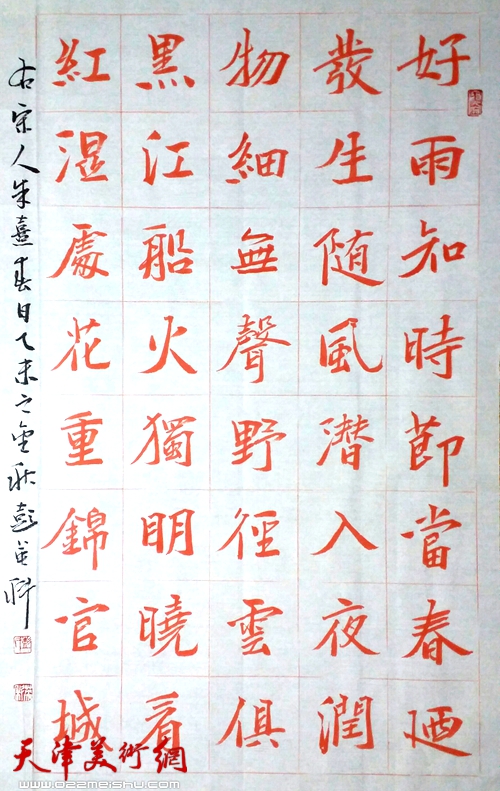 好雨知時節當春廼
發生随風潜入夜潤
物細無聲野徑雲俱
黑江船火獨明曉看
紅湿處花重錦官城
右宋人朱熹春日乙未之金秋彭英科
天津美術網
www.022meishu.com